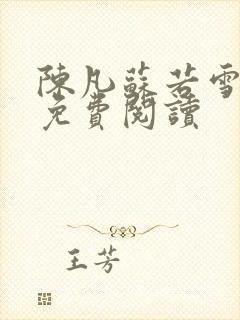 陳凡蘇若雪
免費閱讀
王芳